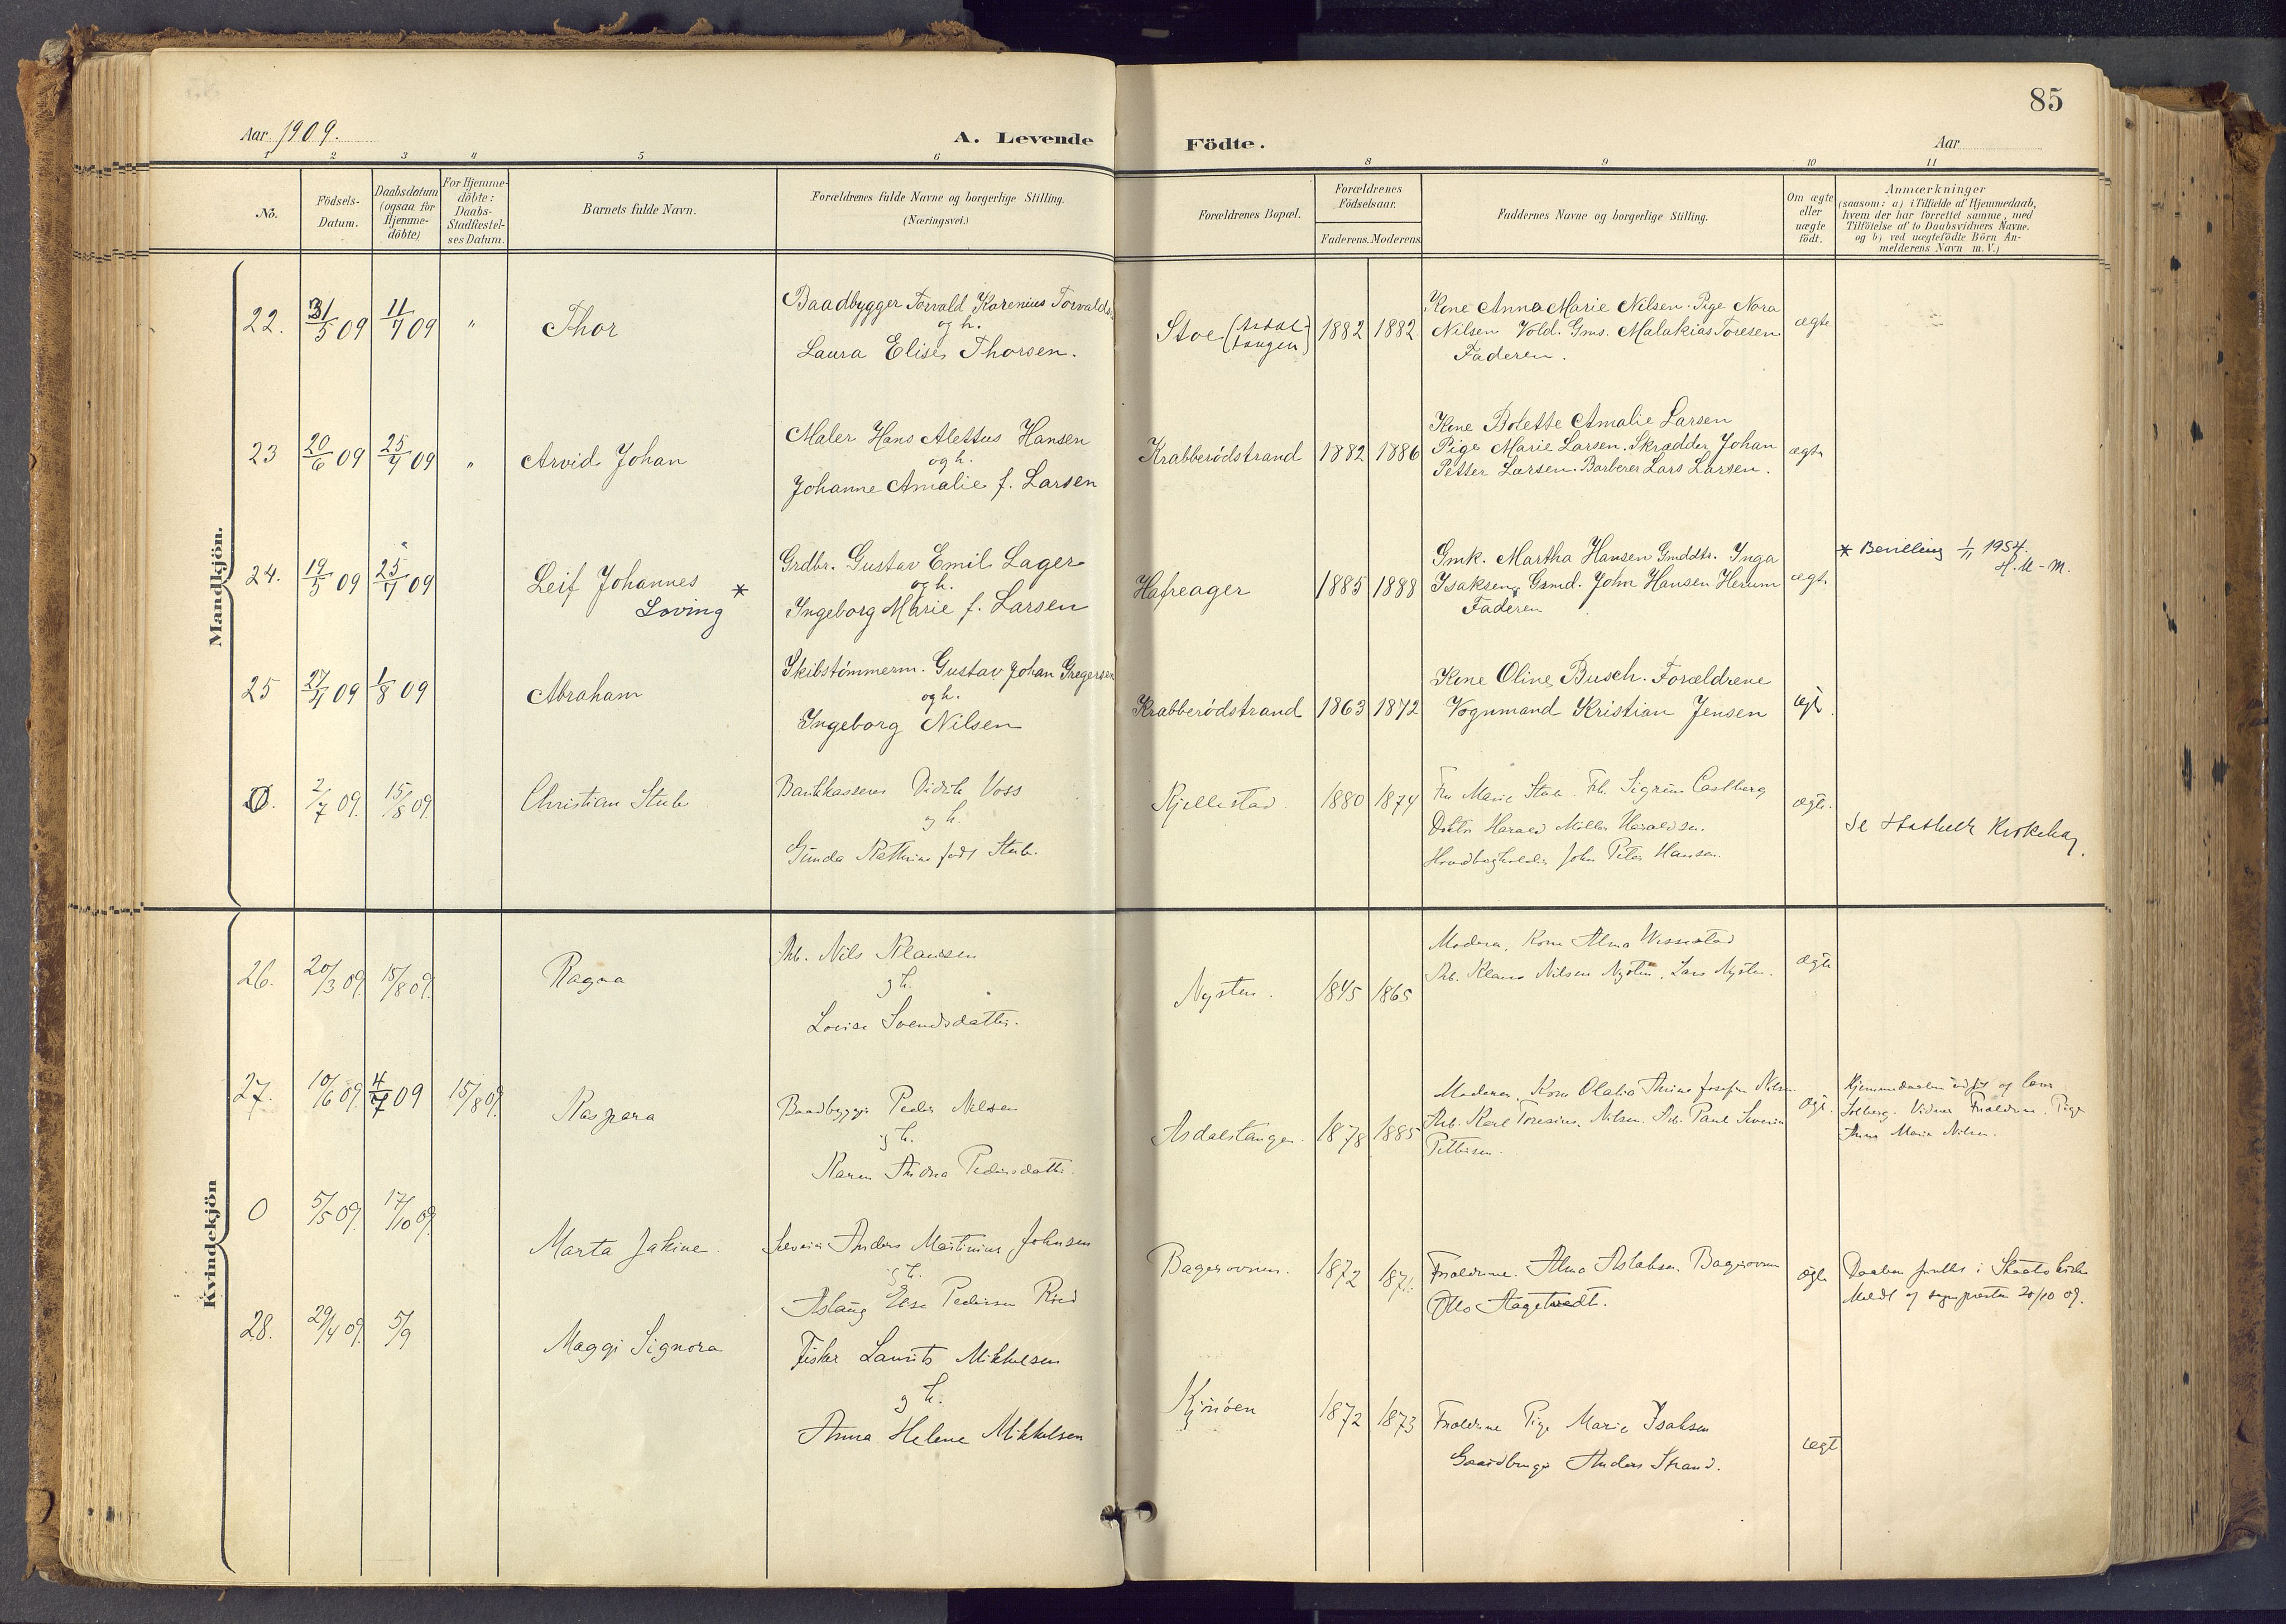 85
Aar 1909.
A. Levende Födte.
Aar
1 2 3 4 5 6 8 9 10 11
No.
Födsels-
Datum.
Daabsdatum
(ogsaa for
Hjemme-
döbte)
For Hjemme-
döbte:
Daabs-
Stadfæstel-
ses Datum.
Barnets fulde Navn.
Forældrenes fulde Navne og borgerlige Stilling.
(Næringsvei.)
Forældrenes Bopæl.
Forældrenes
Födselsaar.
Faderens. Moderens
Faddernes Navne og borgerlige Stilling.
Om ægte
eller
uægte
födt.
Anmærkninger
(saasom: a) i Tilfælde af Hjemmedaab,
hvem der har forrettet samme, med
Tilföielse af to Daabsvidners Navne,
og b) ved uægtefödte Börn An-
melderens Navn m. V.)
Mandkjön.
22. 31/5 09 11/7 09 " Thor
Baadbygger Torvald Karenius Torvalds
og h.
Laura Elise Thorsen.
Stoe (Asdal-
tangen)
1882 1882
Kone Anna Marie Nilsen. Pige Nora
Nilsen Vold. Gms. Malakias Toresen
Faderen.
ægte
23 20/6 09 25/7 09 " Arvid Johan
Maler Hans Alettus Hansen
og h.
Johanne Amalie f. Larsen
Krabberödstrand 1882 1886
Kone Bolette Amalie Larsen
Pige Marie Larsen. Skrædder Johan
Petter Larsen. Barberer Lars Larsen.
ægte
24. 19/5 09 25/7 09 Leif Johannes
Loving *
Grdbr. Gustav Emil Lager
og h.
Ingeborg Marie f. Larsen
Hafreager 1885 1888
Gmk. Martha Hansen Gmddtr. Inga
Isaksen, Grmd. John Hansen Herum
Faderen
ægte
* Bevilling 1/11 1954.
25 27/4 09 1/8 09 Abraham
Skibstömmerm. Gustav Johan Gregersen
og h.
Ingeborg Nilsen
Krabberödstrand 1863 1872
Kone Oline Busch. Forældrene
Vognmand Kristian Jensen
ægte
0. 2/7 09. 15/8 09. Christian Stub
Bankkasserer Didrik Voss
og h.
Gunda Kathrine född Stub.
Kjellestad. 1880 1874
Fru Marie Stub. Frk. Sigrun Castberg
Doktor Harald Möller Haraldsen.
Hovedbogholder John Peter Hansen.
ægte.
Kvindekjön
26. 20/3 09. 15/8 09. Ragna
Arb. Nils Klausen
og h.
Lovise Svendsdatter.
Nysten. 1845 1865
Moderen, Kone Alma
Arb. Klaus Nilsen Nysten, Lars Nysten.
ægte
27. 10/6 09. 4/7 09 15/8 09. Kaspara
Baadbygger Peder Nilsen
og h.
Karen Andrea Pedersdatter.
Asdalstangen. 1878 1885
Moderen, Kone Olalia Thrine Josefine Nilsen
Arb. Karl Toresius Nilsen. Arb. Paul Severin
Pettersen.
ægte.
Solberg. Vidner Forældrene, Pige
Anna Marie Nilsen.
0 5/5 09. 17/10 09. Marta Jakine.
Anders Martinius Johnsen
og h.
Aslaug Elise Pedersen
Bagerovnen. 1872 1871.
Forældrene. Alma Aslaksen. Bagerovnen
Otto Aagetvedt.
ægte
Daaben forrettet i Skaatö kirke
Meldt af sognepræsten 20/10 09.
28. 29/4 09. 5/9 Maggi Signora
Fisker Laurits Mikkelsen
og h.
Anna Helene Mikkelsen
Kjönöen 1872 1873
Forældrene Pige Marie Isaksen
Gaardbruger Anders Strand.
ægte